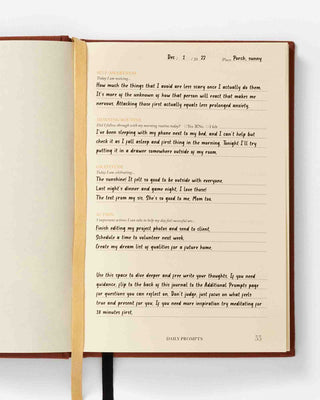 Dec / 1 / 20 22 Place Porch, sunny
SELF-AWARENESS
Today I am noticing...
How much the things that I avoid are less scary once I actually do them.
It's more of the unknown of how that person will react that makes me
nervous. Attacking those first actually equals less prolonged anxiety.
MORNING ROUTINE
Did I follow through with my morning routine today? Yes No
I've been sleeping with my phone next to my bed, and I can't help but
check it as I fall asleep and first thing in the morning. Tonight I'll try
putting it in a drawer somewhere outside of my room.
GRATITUDE
Today I am celebrating...
The sunshine! It felt so good to be outside with everyone.
Last night's dinner and game night, I love those!
The text from my sis. She's so good to me. Mom too.
ACTION
3 important actions I can take to help my day feel successful are...
Finish editing my project photos and send to client.
Schedule a time to volunteer next week.
Create my dream list of qualities for a future home.
Use this space to dive deeper and free write your thoughts. If you need
guidance, flip to the back of this journal to the Additional Prompts page
for questions you can reflect on. Don't judge, just focus on what feels
true and present for you. If you need more inspiration try meditating for
10 minutes first.
DAILY PROMPTS 33